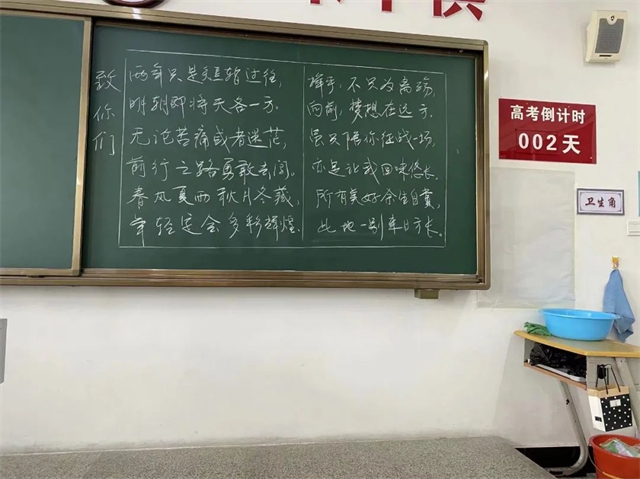 致你们
两年只是过往,
明朝即将天各一方.
无论苦痛或者迷茫,
前行之路勇敢去闯.
春风夏雨秋月冬藏,
年轻会多彩辉煌.
挥手,不只为离场,
向前,梦想在远方.
虽只陪你征战一场,
亦是让我回味悠长.
所有美好余生自赏,
此地一别来日方长.
高考倒计时
002天
卫生角